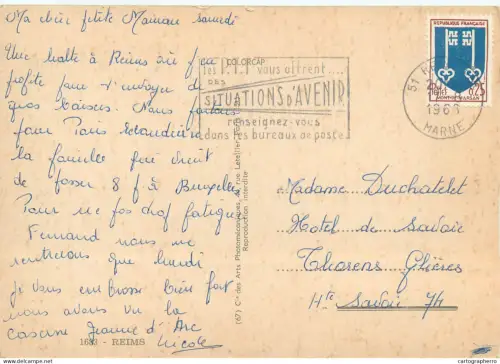 Ma chère petite Maman samedi
Une halte à Reims où j'en
profite pour t'envoyer de
gros baisers. Nous partons
pour Paris
la famille
de 8 f à Bruxelles
Pour ne pas trop fatiguer
Fernand nous ne
rentrerons que lundi
Je vous embrasse bien fort
nous avons vu la
caserne Jeanne d'Arc
Nicole
1633 - REIMS
COLORCAP
les P.T.T vous offrent....
DES
SITUATIONS D'AVENIR
renseignez-vous
dans les bureaux de poste
(67) Cie des Arts Photomécaniques, rue Letellier
Reproduction interdite
51 RE
1966
MARNE
REPUBLIQUE FRANÇAISE
0,25
MONT-DE-MARSAN
Madame Duchatelet
Hotel de Savoie
Thorens Glières
Hte Savoie 74
www.cartographero.com